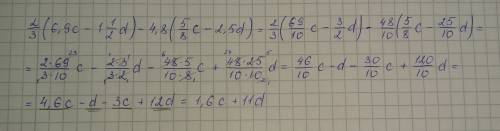 2/3 (6,9c - 1 1/2 d) - 4,8 (5/8 c - 2,5d) = 2/3 (69/10 c - 3/2 d) - 48/10 (5/8 c - 25/10 d) =
= 2·69/3·10 c - 2·3/3·2 d - 48·5/10·8 c + 48·25/10·10 d = 46/10 c - d - 30/10 c + 120/10 d =
= 4,6c - d - 3c + 12d = 1,6c + 11d